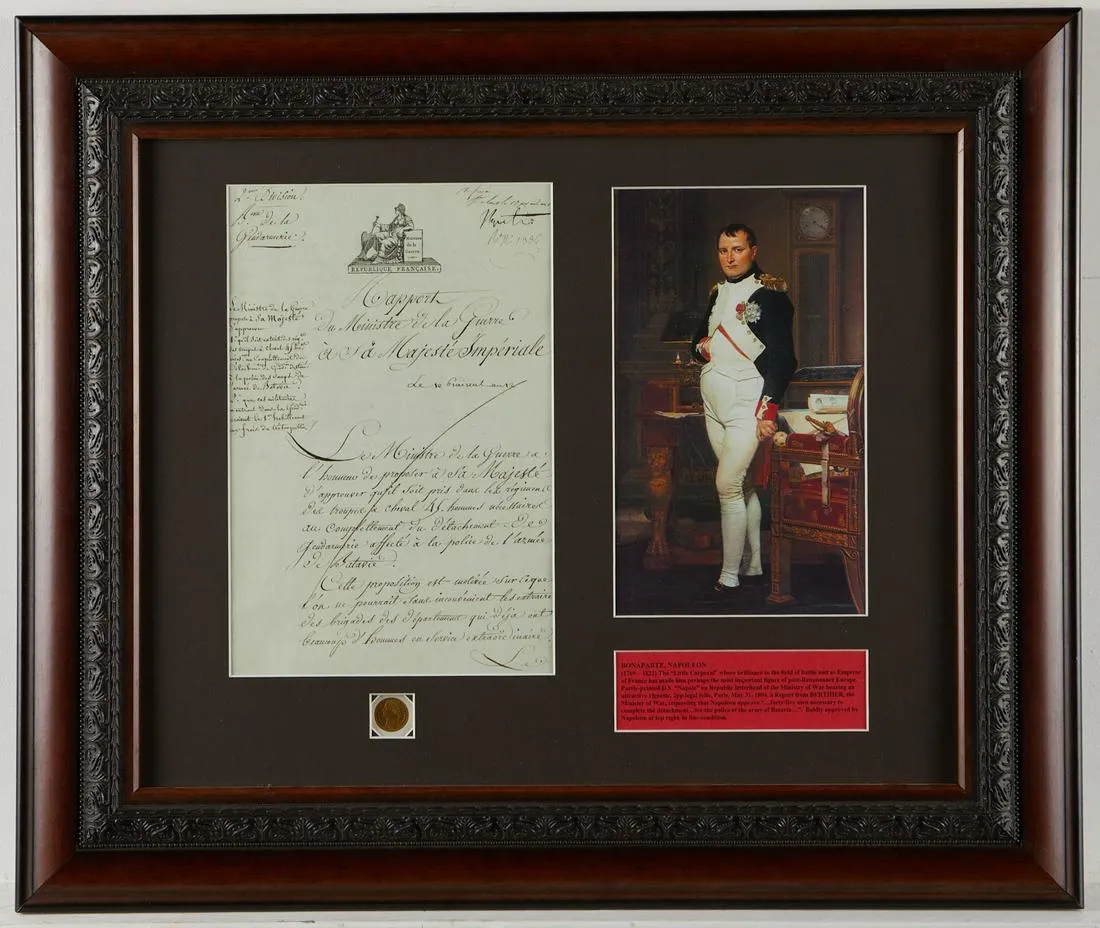 2.me Division
A.me de la
Gendarmerie.
REPUBLIQUE FRANÇAISE.
Rapport
Du Ministre de la Guerre
à Sa Majesté Impériale
Le Ministre de la Guerre
propose à Sa Majesté
d'approuver
de Batavie.
Le 10 Prairial an 12
Le Ministre de la Guerre a
l'honneur de proposer à Sa Majesté
d'approuver qu'il soit pris dans les régimens
des troupes à cheval 45 hommes nécessaires
au Complettement du détachement de
Gendarmerie affecté à la police de l'armée
de Batavie.
Cette proposition est motivée sur ce que
l'on ne pourrait sans inconvénient les extraire
des brigades des département qui déja ont
beaucoup d'hommes en service extraordinaire.
BONAPARTE, NAPOLEON
(1769 – 1821) The "Little Corporal" whose brilliance in the field of battle and as Emperor
of France has made him perhaps the most important figure of post-Renaissance Europe.
Partly-printed D.S. "Napole" on Republic letterhead of the Ministry of War bearing an
attractive vignette, 2pp legal folio, Paris, May 31, 1804, a Report from BERTHIER, the
Minister of War, requesting that Napoleon approve "…forty-five men necessary to
complete the detachment…for the police of the army of Bavaria…". Boldly approved by
Napoleon at top right, in fine condition.